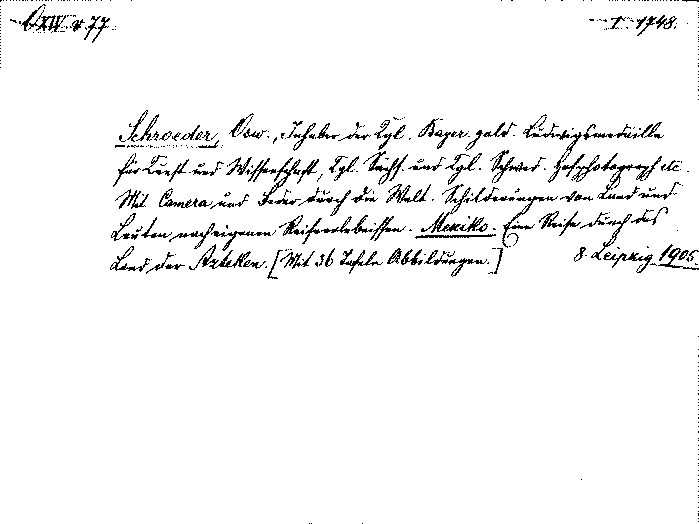 O XIV v 77 1748.
Schroeder, Osw., Inhaber der Kgl. Bayer. gold. Ludwigsmedaille
für Kunst und Wissenschaft, Kgl. Sächs. und Kgl. Schwed. Hofphotograph etc.
Mit Camera und Feder durch die Welt. Schilderungen von Land und
Leuten nach eigenen Reiseerlebnissen. Mexiko. Eine Reise durch das
Land der Azteken. [Mit 36 Tafeln Abbildungen.] 8. Leipzig 1905.